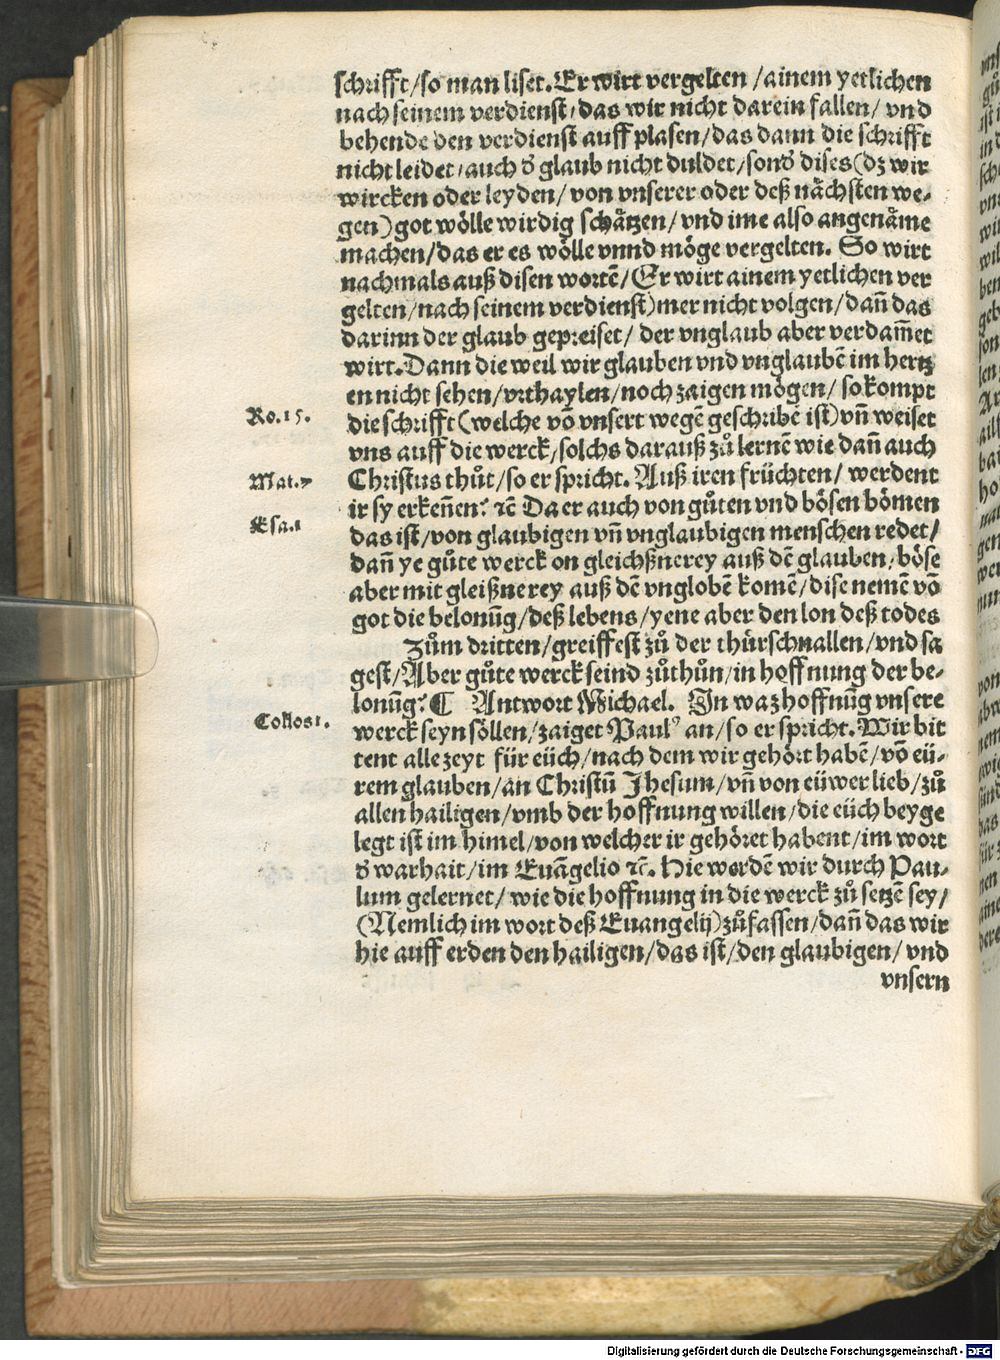 schrifft/so man liset. Er wirt vergelten /ainem yetlichen
nach seinem verdienst/das wir nicht darein fallen/ vnd
behende den verdienst auff plasen/das dann die schrifft
nicht leidet/auch d̕ glaub nicht duldet/sond̕ dises(dz wir
wircken oder leyden/ von vnserer oder deß nåchsten we⸗
gen)got wölle wirdig schåtzen/ vnd ime also angenåme
machen/das er es wölle vnnd möge vergelten. So wirt
nachmals auß disen wortẽ/(Er wirt ainem yetlichen ver
gelten/nach seinem verdienst)mer nicht volgen/dañ das
darinn der glaub gepreiset/ der vnglaub aber verdam̃et
wirt. Dann die weil wir glauben vnd vnglaubẽ im hertz
en nicht sehen/vrthaylen/noch zaigen mögen/ so kompt
Ro. 15.
die schrifft(welche võ vnsert wegẽ geschribẽ ist)vñ weiset
vns auff die werck/solchs darauß zů lernẽ wie dañ auch
Mat. 7
Christus thůt/so er spricht. Auß iren früchten/ werdent
ir sy erkeñen? ꝛc̃ Da er auch von gůten vnd bösen bömen
Esa. 1
das ist/von glaubigen vñ vnglaubigen menschen redet/
dañ ye gůte werck on gleichßnerey auß dẽ glauben/böse
aber mit gleißnerey auß dẽ vnglobẽ komẽ/dise nemẽ võ
got die belonũg/deß lebens/yene aber den lon deß todes
Zům dritten/greiffest zů der thürschnallen/vnd sa
gest/Aber gůte werck seind zůthůn/in hoffnung der be⸗
lonũg? ¶ Antwort Michael. In waz hoffnũg vnsere
Collos 1.
werck seyn söllen/zaiget Paulꝰ an/so er spricht. Wir bit
tent alle zeyt für eüch/nach dem wir gehört habẽ/võ eü⸗
rem glauben/an Christũ Jhesum/vñ von eüwer lieb/zů
allen hailigen/vmb der hoffnung willen/die eüch beyge
legt ist im himel/von welcher ir gehöret habent/im wort
d̕ warhait/im Euãgelio ꝛc̃. Hie werdẽ wir durch Pau⸗
lum gelernet/wie die hoffnung in die werck zů setzẽ sey/
(Nemlich im wort deß Euangelij)zůfassen/dañ das wir
hie auff erden den hailigen/das ist/den glaubigen/ vnd
vnsern
Digitalisierung gefördert durch die Deutsche Forschungsgemeinschaft - DFG